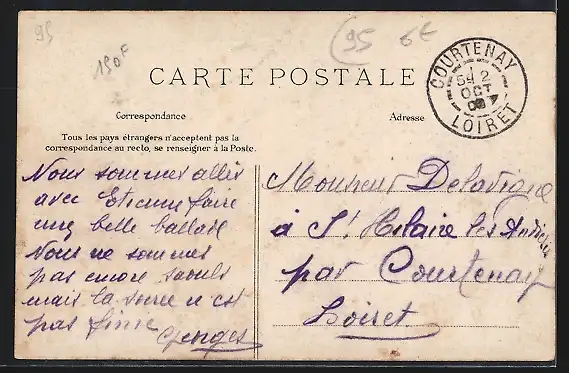 95
150F
(95
6€
CARTE POSTALE
COURTENAY
2
OCT
LOIRET
Correspondance
Adresse
Tous les pays étrangers n'acceptent pas la
correspondance au recto, se renseigner à la Poste.
Nous sommes allés
avec Etienne faire
une belle ballade
Nous ne sommes
pas encore saouls
mais la soirée n'est
pas finie
Georges
Monsieur Delavigne
à St Hilaire les Andrésis
par Courtenay
Loiret